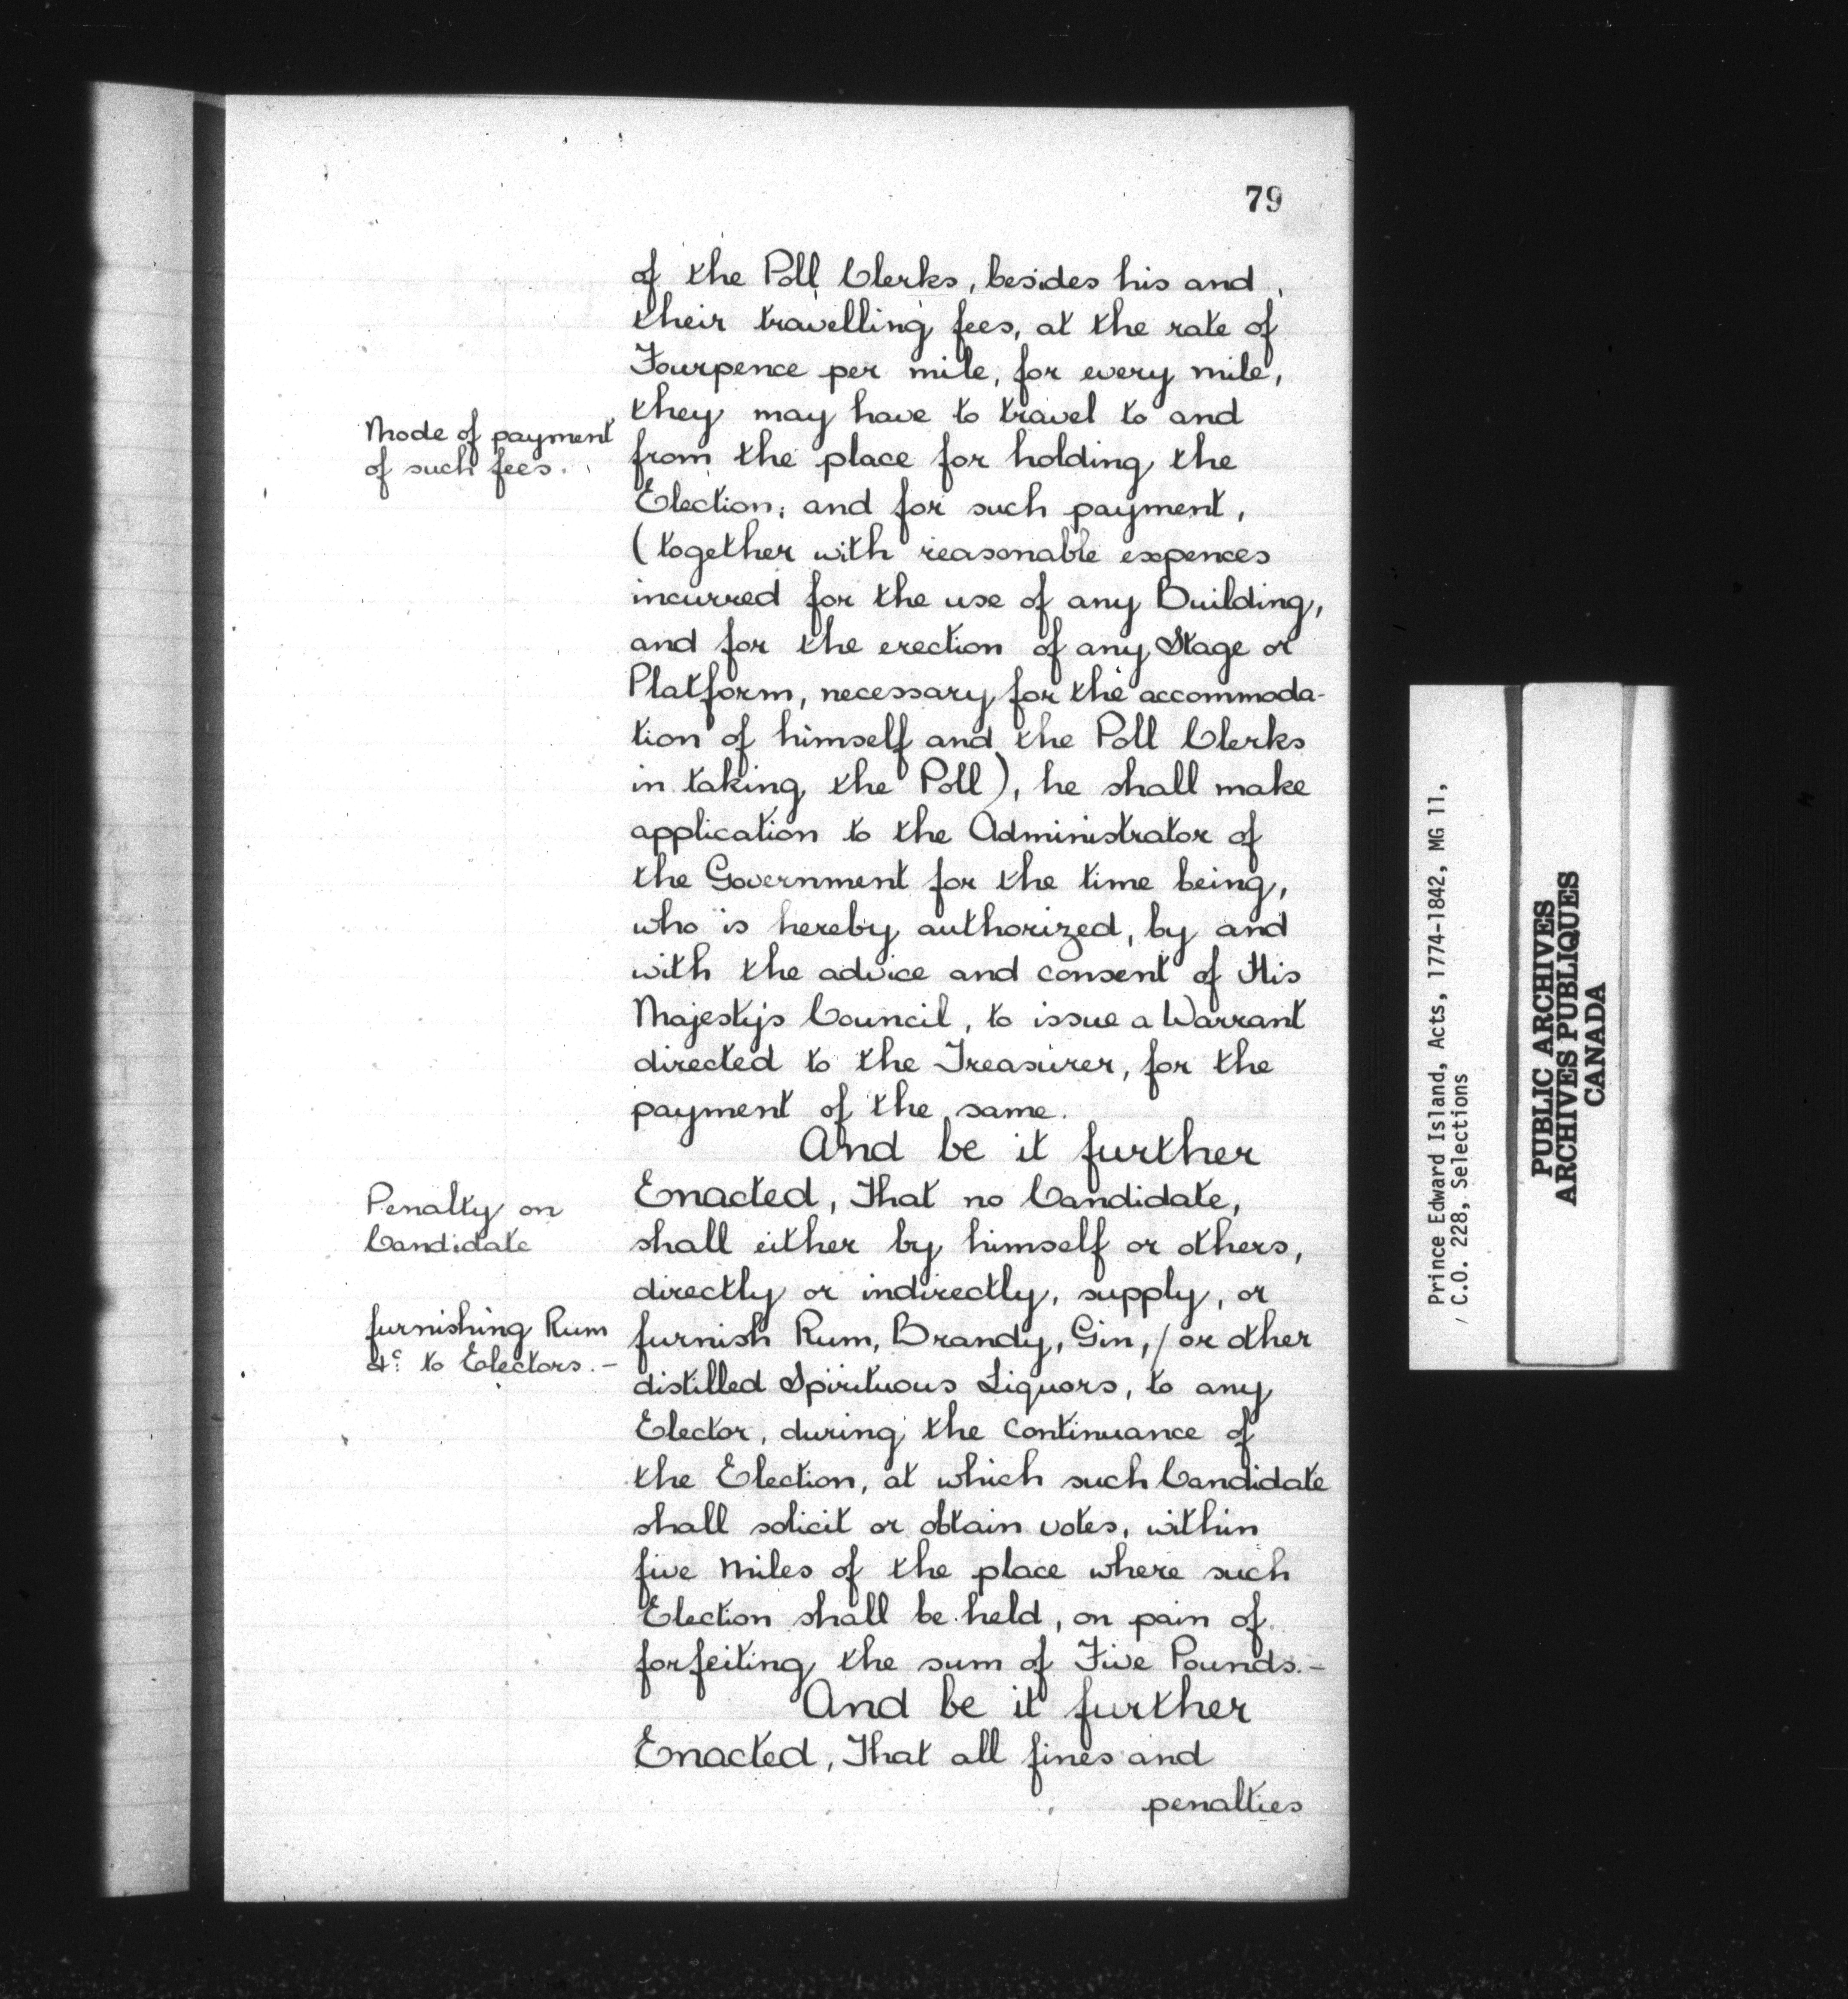 79
of the Poll Clerks, besides his and
their travelling fees, at the rate of
Fourpence per mile, for every mile,
they may have to travel to and
Mode of payment
of such fees.
from the place for holding the
Election; and for such payment,
(together with reasonable expences
incurred for the use of any Building,
and for the erection of any Stage or
Platform, necessary for the accommoda-
tion of himself and the Poll Clerks
in taking the Poll), he shall make
application to the Administrator of
the Government for the time being,
who is hereby authorized, by and
with the advice and consent of His
Majesty's Council, to issue a Warrant
directed to the Treasurer, for the
payment of the same.
And be it further
Enacted, That no Candidate,
Penalty on
Candidate
furnishing Rum
&c. to Electors.-
shall either by himself or others,
directly or indirectly, supply, or
furnish Rum, Brandy, Gin, / or other
distilled Spirituous Liquors, to any
Elector, during the continuance of
the Election, at which such Candidate
shall solicit or obtain votes, within
five miles of the place where such
Election shall be held, on pain of
forfeiting the sum of Five Pounds.-
And be it further
Enacted, That all fines and
penalties
Prince Edward Island, Acts, 1774-1842, MG 11,
C.O. 228, Selections
PUBLIC ARCHIVES
ARCHIVES PUBLIQUES
CANADA